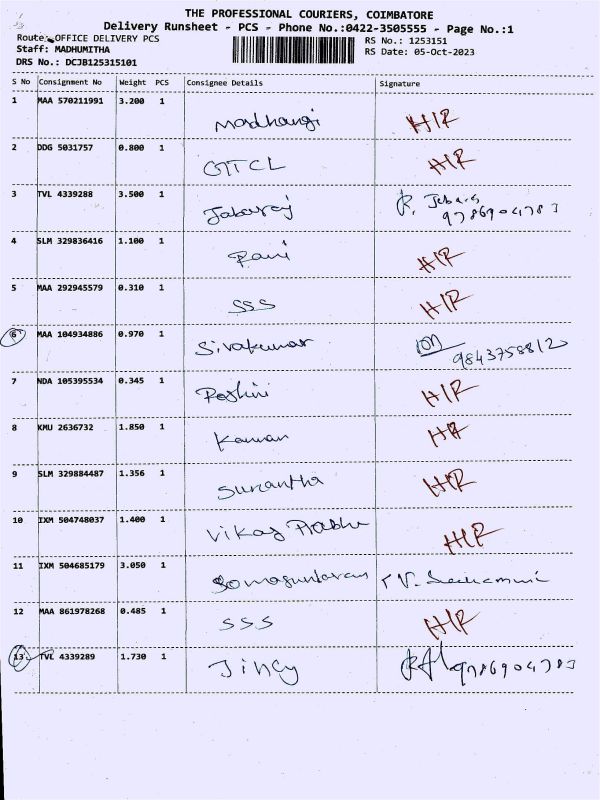 THE PROFESSIONAL COURIERS, COIMBATORE
Delivery Runsheet - PCS - Phone No.:0422-3505555 - Page No.:1
Route: OFFICE DELIVERY PCS RS No.: 1253151
Staff: MADHUMITHA RS Date: 05-Oct-2023
DRS No.: DCJB125315101
S No Consignment No Weight PCS Consignee Details Signature
1 MAA 570211991 3.200 1 Madhangi H/R
2 DDG 5031757 0.800 1 GTCL H/R
3 TVL 4339288 3.500 1 Jabaraj R. Jeba
9786904783
4 SLM 329836416 1.100 1 Rani H/R
5 MAA 292945579 0.310 1 SSS H/R
6 MAA 104934886 0.970 1 Sivakumar
9843758812
7 NDA 105395534 0.345 1 Roshini H/R
8 KMU 2636732 1.850 1 Kannan H/R
9 SLM 329884487 1.356 1 Sunantha H/R
10 IXM 504748037 1.400 1 Vikas Prabhu H/R
11 IXM 504685179 3.050 1 Somasundaram
12 MAA 861978268 0.485 1 SSS H/R
13 TVL 4339289 1.730 1 Jincy 9786904783